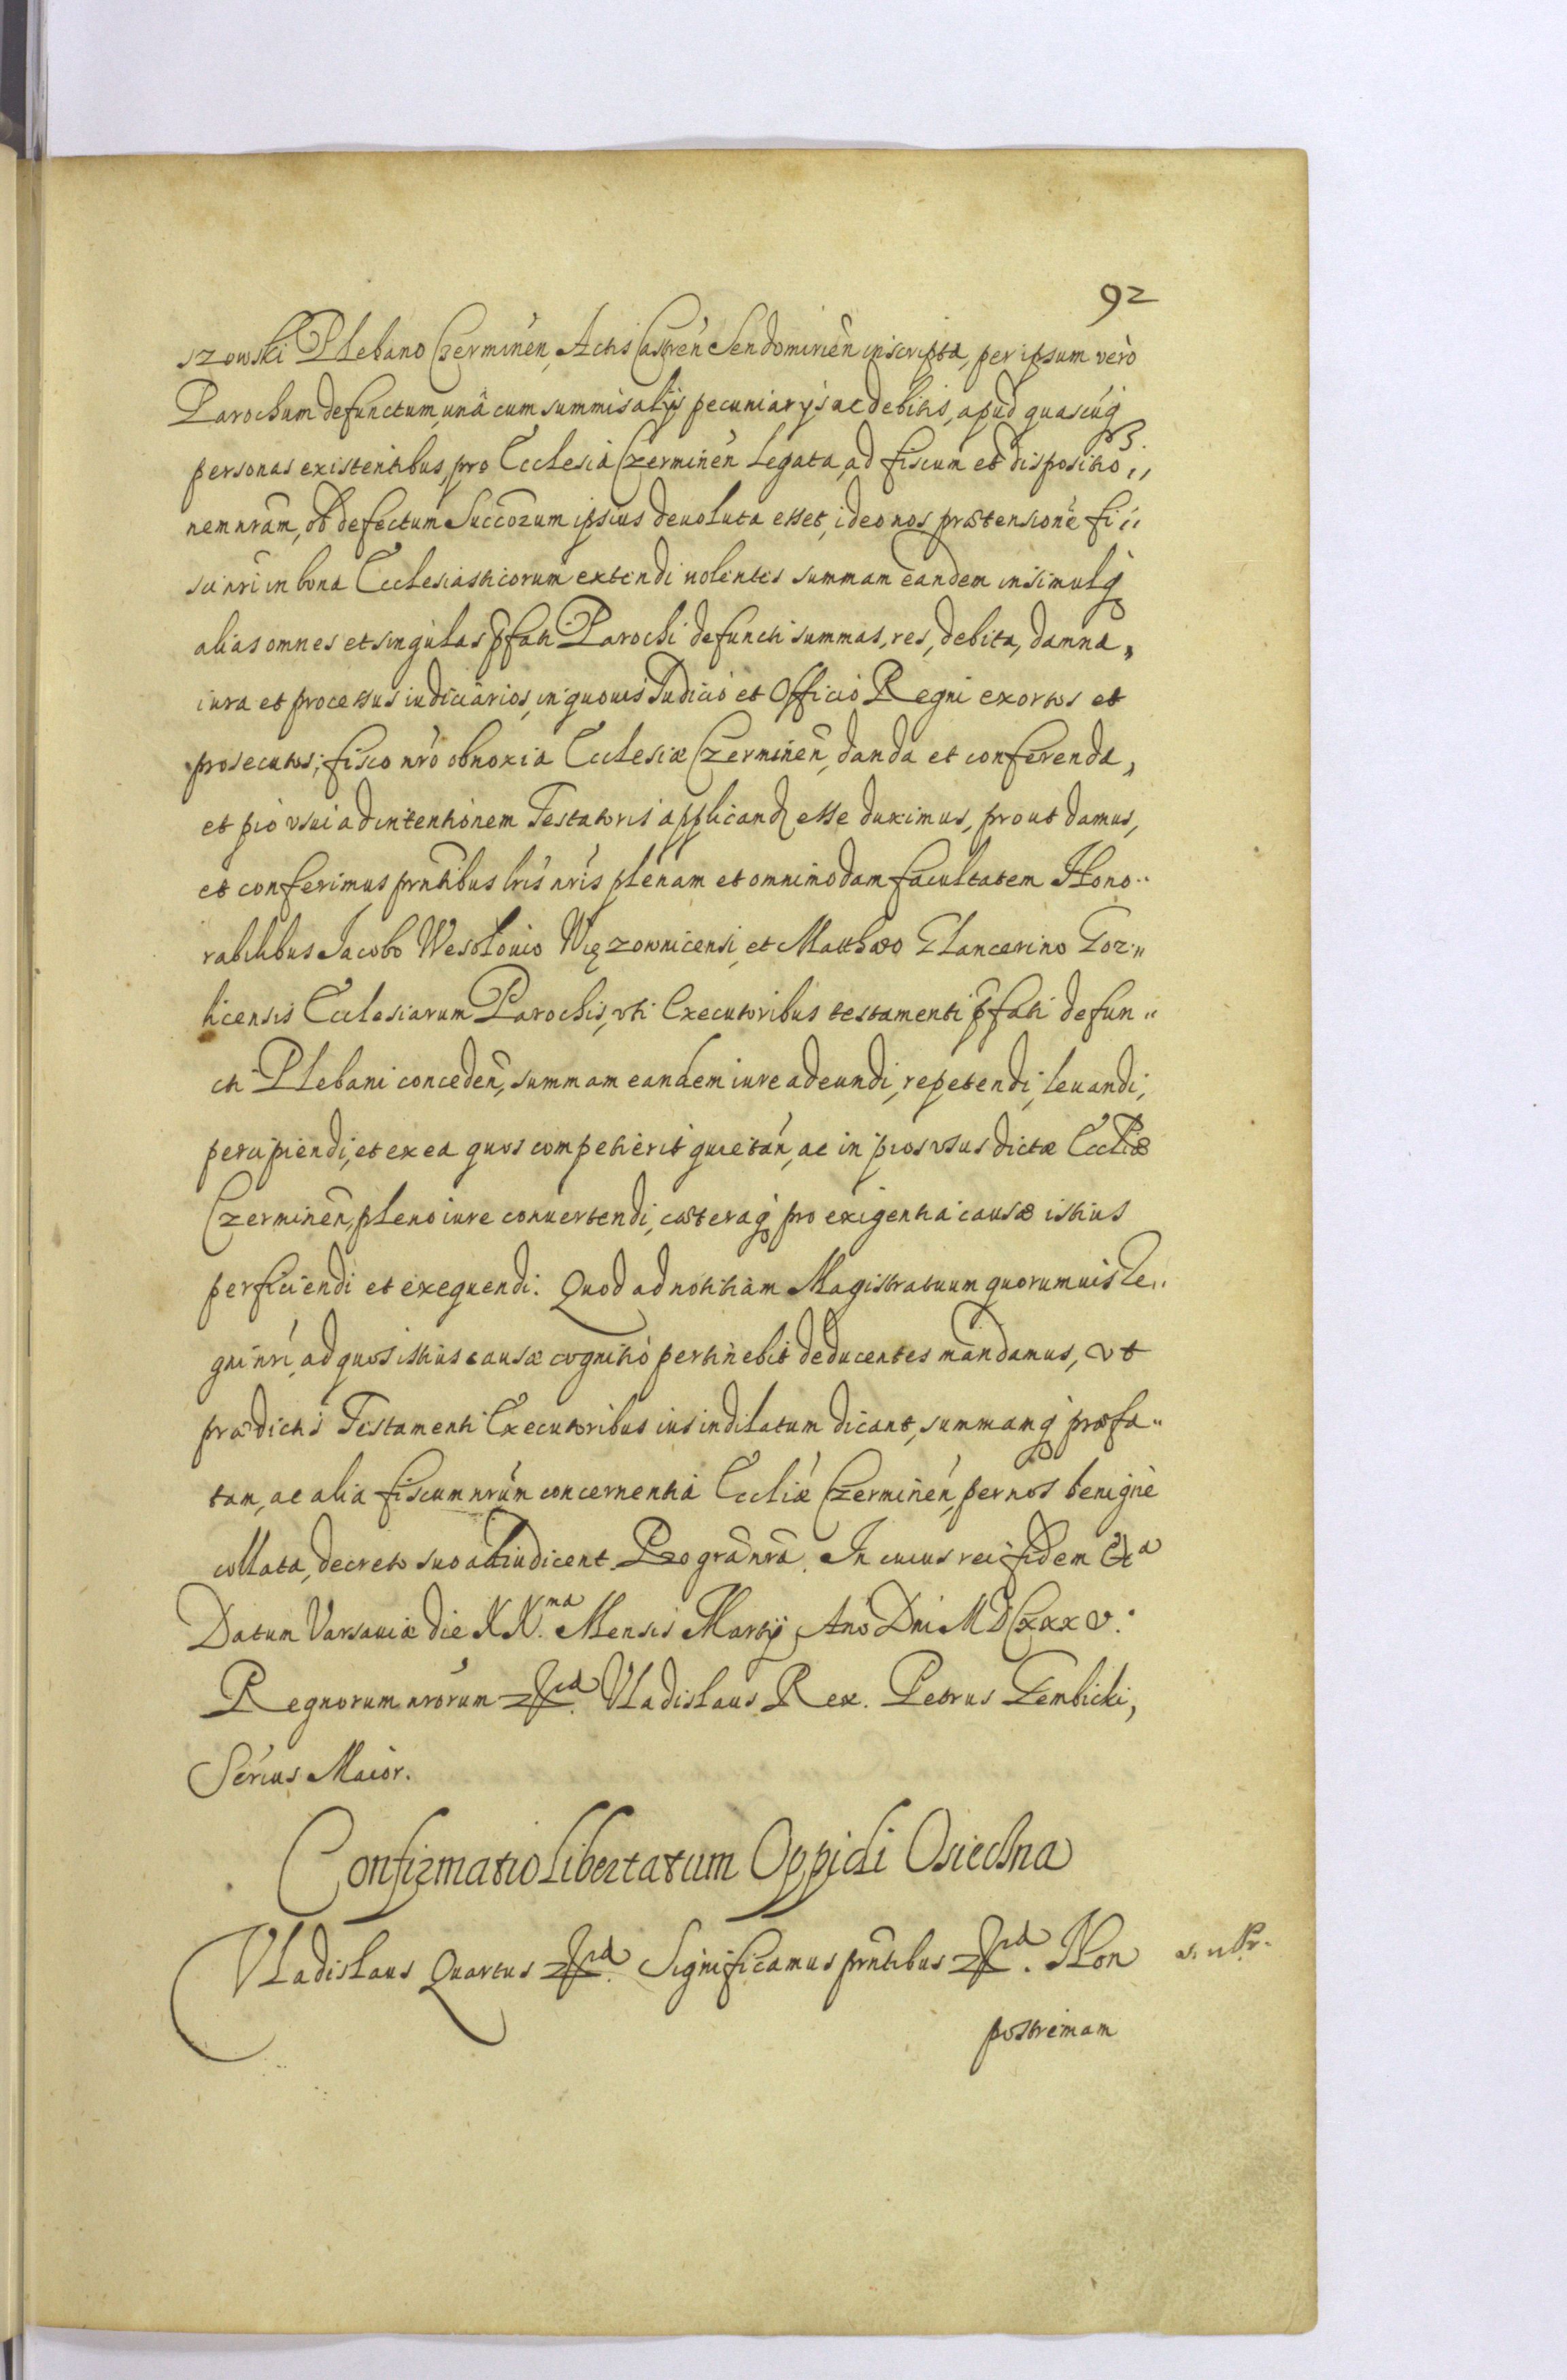 92
szowski Plebano Czerminen, Actis Castren Sendomirien inscripta, per ipsum vero
Parochum defunctum, unâ cum summis alijs pecuniarijs ac debitis, apud quascúq
personas existentibus, pro Ecclesia Czerminen legata, ad fiscum et dispositio„
nem nrãm, ob defectum Succorum ipsius deuoluta esset, ideo nos prætensionē fi„
sci nri in bona Ecclesiasticorum extendi nolentes summam eandem insimulq
alias omnes et singulas pfati Parochi defuncti summas, res, debita, damna,
iura et processus iudiciarios, in quouis Iudicio et Officio Regni exortos et
prosecutos, fisco nro obnoxia Ecclesiæ Czerminen, danda et conferenda,
et pio vsui ad intentionem Testatoris applicand esse duximus, prout damus,
et conferimus prntibus lris nris plenam et omnimodam facultatem Hono„
rabilibus Jacobo Wesolouio Wiązownicensi, et Matthæo Glancerino Gor„
licensis Ecclesiarum Parochis, vti Executoribus testamenti pfati defun„
cti Plebani conceden, summam eandem iure adeundi, repetendi, leuandi,
percipiendi, et ex ea quos competierit quietan, ac in pios vsus dictæ Eccliæ
Czerminen, pleno iure conuertendi, cæteraq pro exigentia causæ istius
perficiendi et exequendi. Quod ad notitiam Magistratuum quorumuis Re„
gni nri, ad quos istius causæ cognitio pertinebit deducentes mandamus, vt
prædictis Testamenti Executoribus ius indilatum dicant, summamq præfa„
tam, ac alia fiscum nrum concernentia Eccliæ Czerminen, per nos benigne
collata, decreto suo adiudicent. Pro grã nrã. In cuius rei fidem &a
Datum Varsauiæ die XX.ma Mensis Martij Ano Dni MDCxxxv.
Regnorum nrorum &a. Vladislaus Rex. Petrus Gembicki,
Serius Maior.
Confirmatio libertatum Oppidi Osieczna
Vladislaus Quartus &a. Significamus prntibus &a. Non
postremam